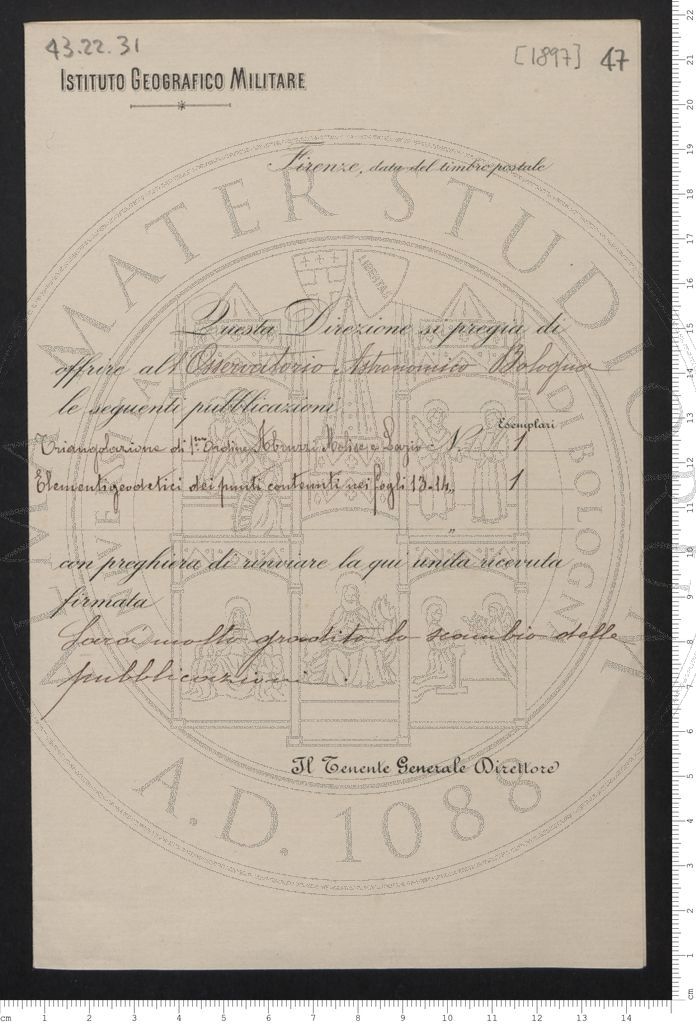 43.22.31
[1897] 47
ISTITUTO GEOGRAFICO MILITARE
Firenze, data del timbro postale
Questa Direzione si pregia di
offrire all'Osservatorio Astronomico Bologna
le seguenti pubblicazioni
Esemplari
Triangolazione di 1º Ordine Abruzzi Molise e Lazio - N. 1
Elementi geodetici dei punti contenuti nei fogli 13-14 „ 1
„
con preghiera di rinviare la qui unita ricevuta
firmata
Sarà molto gradito lo scambio delle
pubblicazioni.
Il Tenente Generale Direttore
ALMA MATER STUDIORUM
A.D. 1088
LIBERTAS